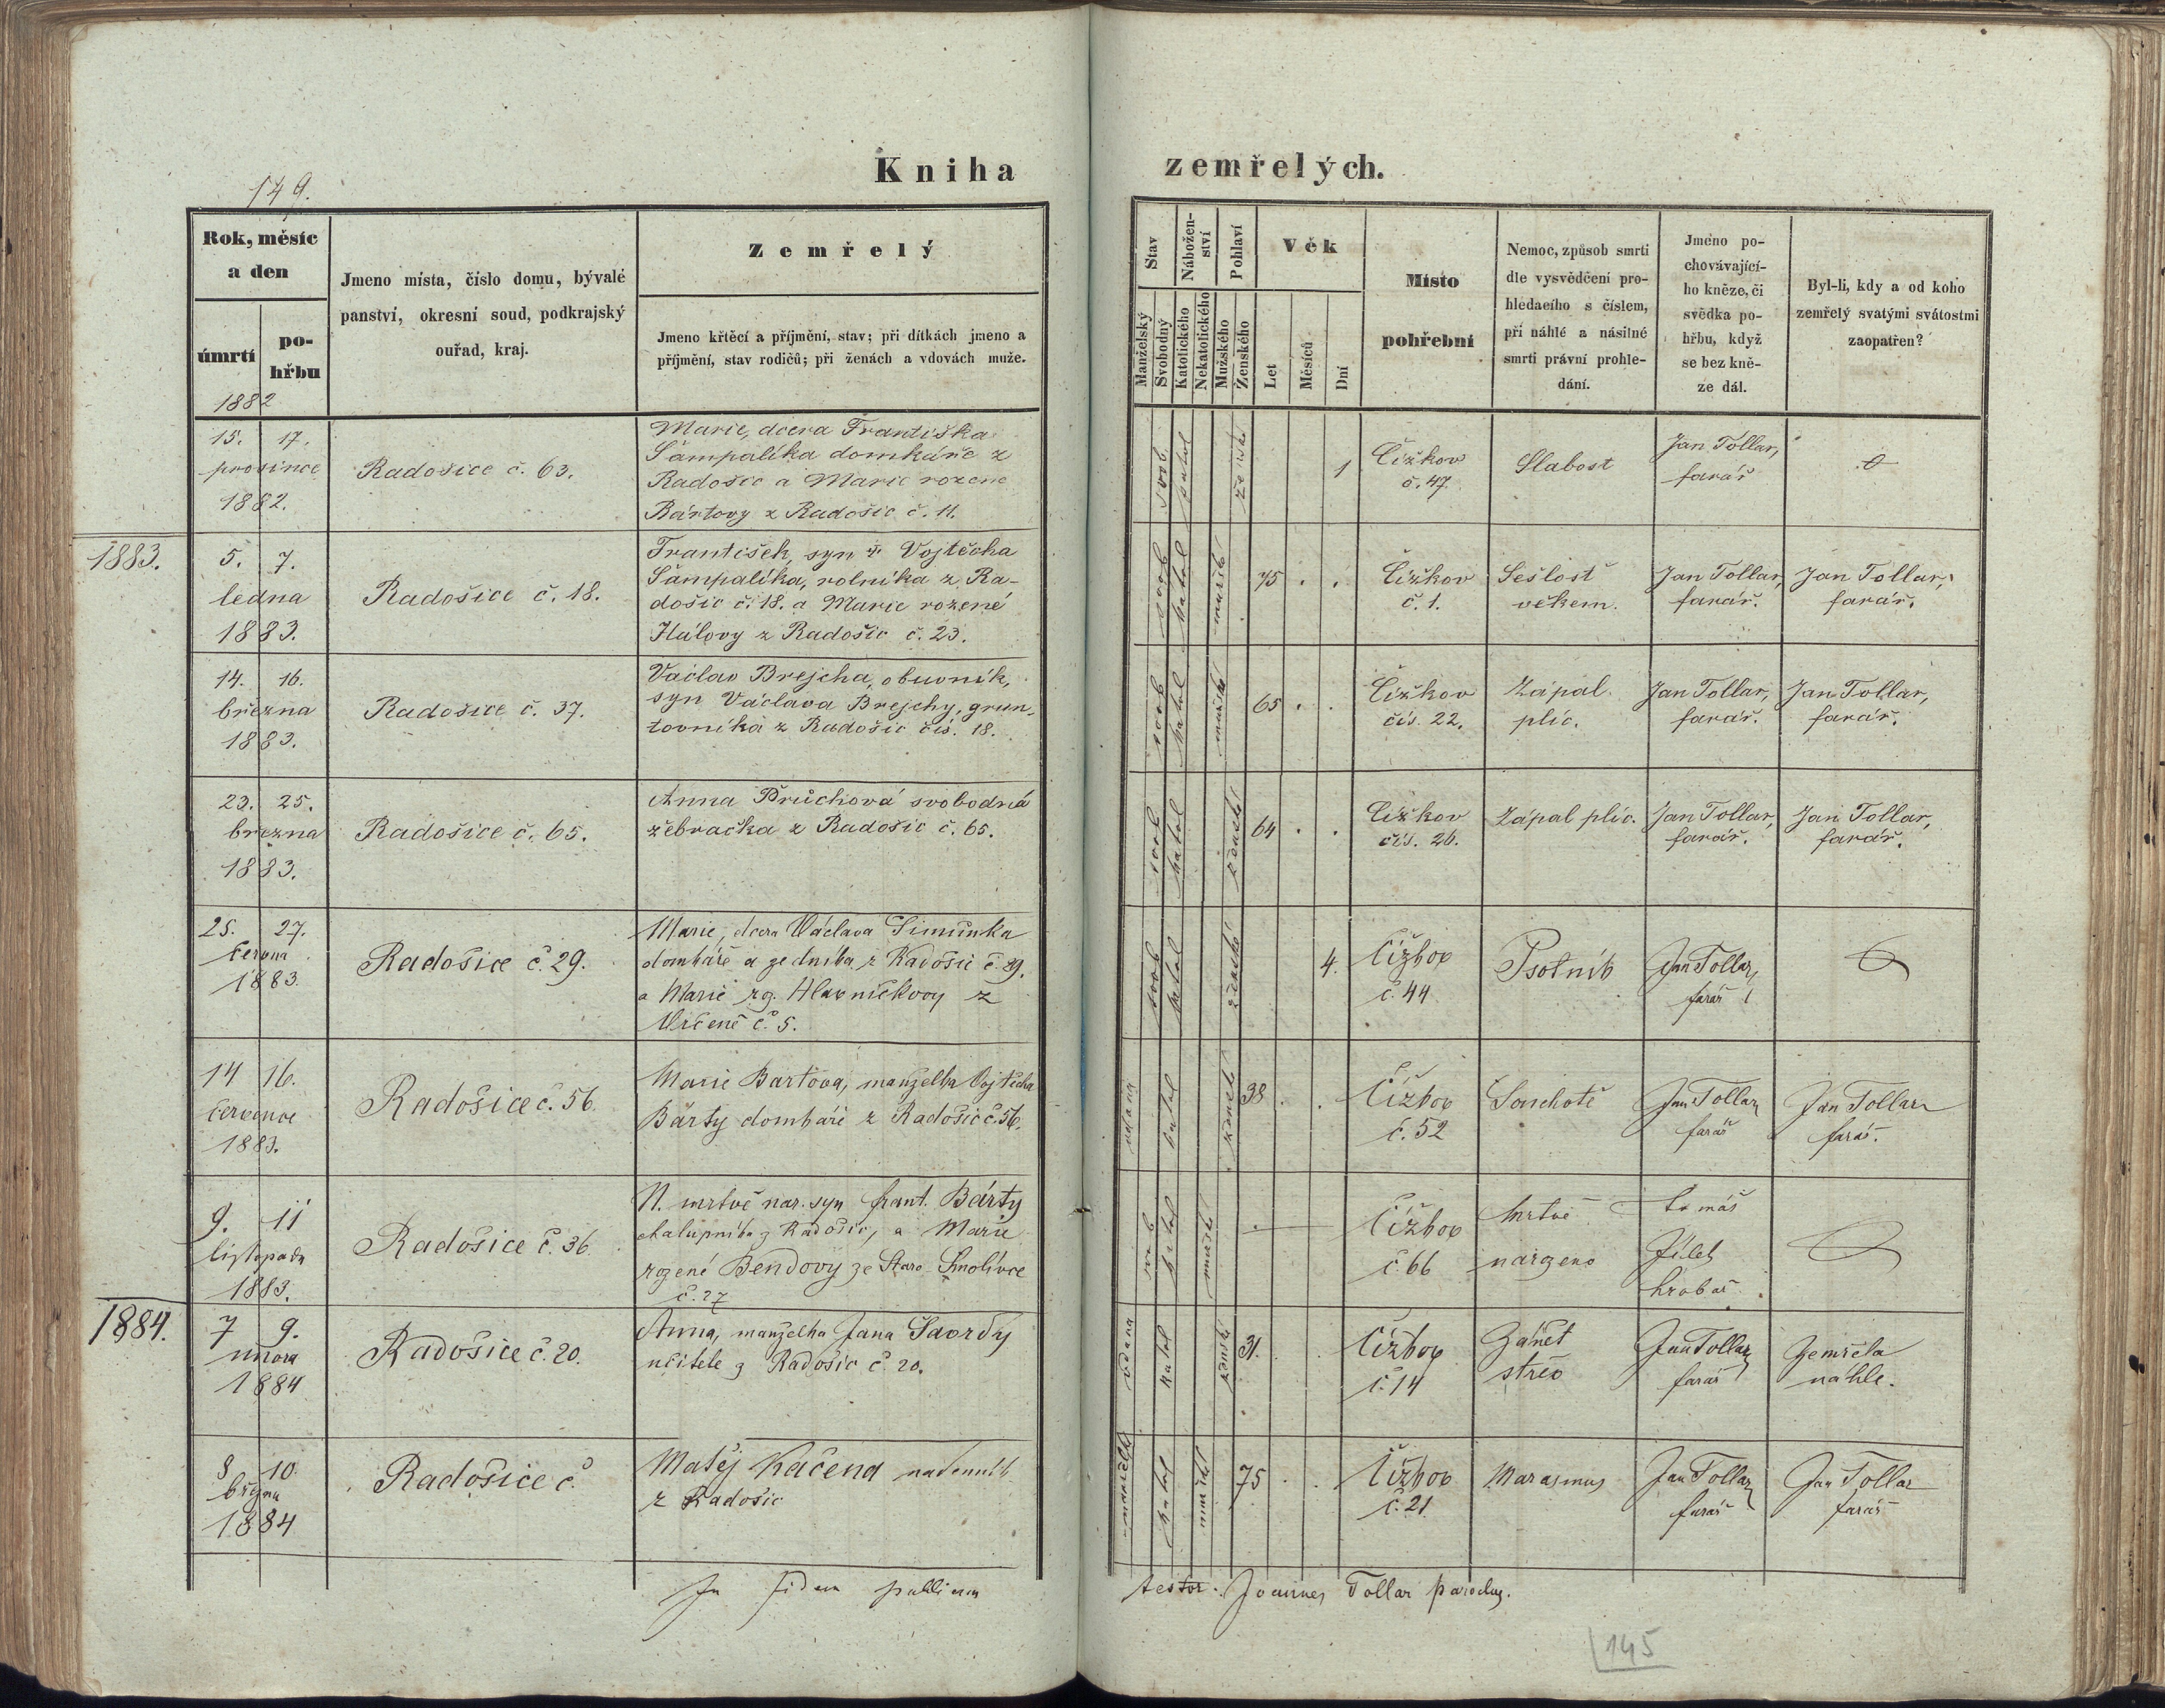 149.
Kniha zemřelých.
Rok, měsíc a den
úmrtí
pohřbu
Jmeno místa, číslo domu, bývalé
panství, okresní soud, podkrajský
ouřad, kraj.
Zemřelý
Jmeno křtěcí a příjmění, stav; při dítkách jmeno a
příjmění, stav rodičů; při ženách a vdovách muže.
Stav
Manželský
Svobodný
Nábožen-
ství
Katolického
Nekatolického
Pohlaví
Mužského
Ženského
Věk
Let
Měsíců
Dní
Místo
pohřební
Nemoc, způsob smrti
dle vysvědčení pro-
hledacího s číslem,
při náhlé a násilné
smrti právní prohle-
dání.
Jméno po-
chovávající-
ho kněze, či
svědka po-
hřbu, když
se bez kně-
ze dál.
Byl-li, kdy a od koho
zemřelý svatými svátostmi
zaopatřen?
1882
15. 17.
prosince
1882.
Radošice č. 63.
Marie, dcera Františka
Šampalíka domkáře z
Radošic a Marie rozené
Bártovy z Radošic č. 11.
svob.
katol
ženské
1
Čížkov
č. 47.
Slabost
Jan Tollar,
farář
1883.
5. 7.
ledna
1883.
Radošice č. 18.
František, syn Vojtěcha
Šampalíka, rolníka z Ra-
došic č. 18. a Marie rozené
Hálovy z Radošic č. 23.
svob
katol
mužské
75
Čížkov
č. 1.
Sešlost
věkem.
Jan Tollar,
farář.
Jan Tollar,
farář.
14. 16.
března
1883.
Radošice č. 37.
Václav Brejcha, obuvník,
syn Václava Brejchy, grun-
tovníka z Radošic čís. 18.
svob
katol
mužské
65
Čížkov
čís. 22.
Zápal
plic.
Jan Tollar,
farář.
Jan Tollar,
farář.
23. 25.
března
1883.
Radošice č. 65.
Anna Průchová svobodná
žebračka z Radošic č. 65.
svob
katol
ženské
64
Čížkov
čís. 26.
Zápal plic.
Jan Tollar,
farář.
Jan Tollar,
farář.
25. 27.
června
1883.
Radošice č. 29.
Marie, dcera Václava Šimůnka
domkáře a zedníka z Radošic č. 29.
a Marie roz. Hlavničkovy z
Vrčeně č. 5.
svob
katol
ženské
4.
Čížkov
č. 44
Psotník
Jan Tollar,
farář
14 16.
července
1883.
Radošice č. 56.
Marie Bartova, manželka Vojtěcha
Bárty domkáře z Radošic č. 56.
vdaná
katol
ženské
38
Čížkov
č. 52
Souchotě
Jan Tollar
farář
Jan Tollar
farář.
9. 11
listopadu
1883.
Radošice č. 36.
N. mrtvě nar. syn Frant. Bárty
chalupníka z Radošic, a Marie
rozené Bendovy ze Staro Smolivce
č. 27
svob
katol
mužské
Čížkov
č. 66
Mrtvě
narozeno
Tomáš
Jílek
hrobař
1884.
7 9.
února
1884
Radošice č. 20.
Anna, manželka Jana
učitele z Radošic č. 20.
vdaná
katol
ženské
31.
Čížkov
č. 14
Zánět
střev
Jan Tollar
farář
Zemřela
náhle.
8 10.
března
1884
Radošice č.
Matěj Kačena nadenník
z Radošic
manželský
katol
mužské
75
Čížkov
č. 21.
Marasmus
Jan Tollar
farář
Jan Tollar
farář
In fidem publicam
testor. Joannes Tollar parochus.
145